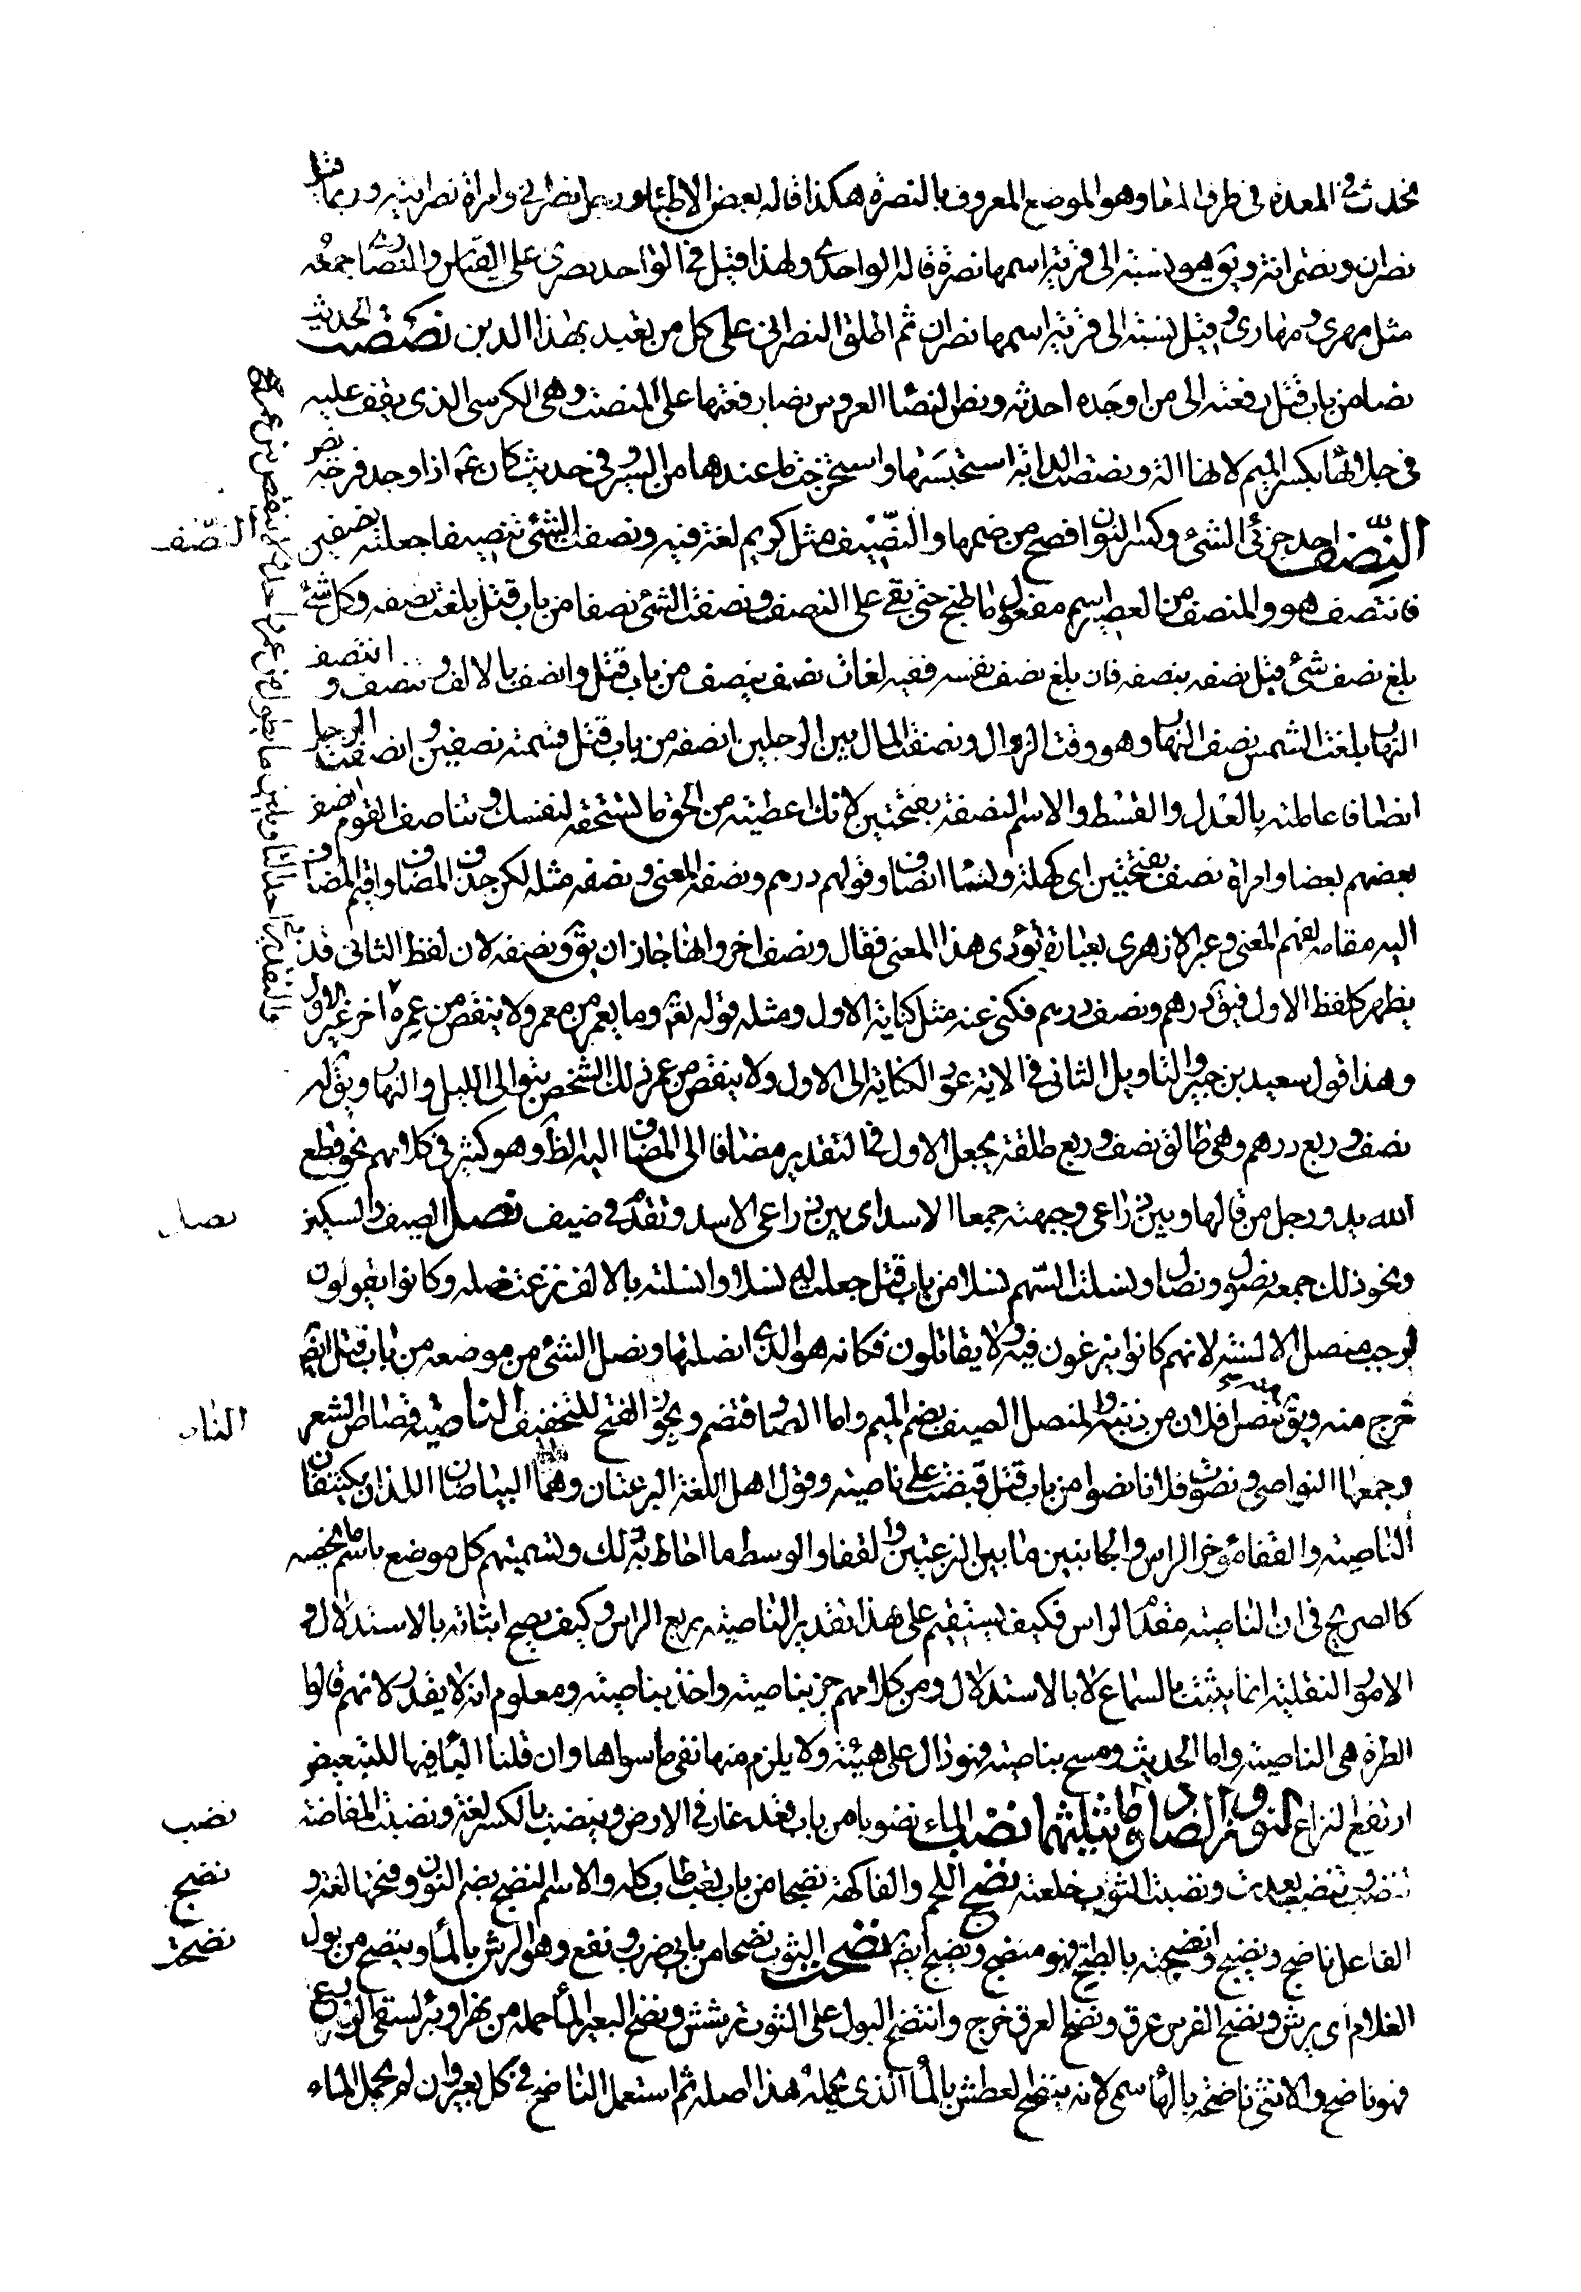 تحدث في المعدة في طرف المعا وهو الموضع المعروف بالنصرة هكذا قاله بعض الاطباء ورجل نصراني وامراة نصرانية وربما قيل
نصران ونصرانة ويق هو نسبة الى قرية اسمها نصرة قاله الواحدي ولهذا قيل في الواحد نصرى على القياس والنصارى جمعه
مثل مهرى ومهارى وقيل نسبة الى قرية اسمها نصران ثم اطلق النصراني على كل من تعبد بهذا الدين نصصت الحديث
نصا من باب قتل رفعته الى من احدثه ونص النساء العروس نصا رفعتها على المنصة وهي الكرسي الذى يقف عليه
في جلائها بكسر الميم لانها الة ونصصت الدابة استحثثتها واستخرجت ما عندها من السير وفي حديث كان عم اذا وجد فرجة نص
النصف احد جزئي الشئ وكسر النون افصح من ضمها والنصيف مثل كريم لغة فيه ونصفت الشئ تنصيفا جعلته نصفين
فانتصف هو والمنصف من العصير اسم مفعول ما طبخ حتى بقي على النصف ونصفت الشئ نصفا من باب قتل بلغت نصفه وكل شئ
بلغ نصف شئ قيل نصفه ينصفه فان بلغ نصف نفسه ففيه لغات نصف ينصف من باب قتل وانصف بالالف وتنصف وانتصف
النهار بلغت الشمس نصف النهار وهو وقت الزوال ونصفت المال بين الرجلين انصفه من باب قتل قسمته نصفين وانصفت الرجل
انصافا عاملته بالعدل والقسط والاسم النصفة بفتحتين لانك اعطيته من الحق ما تستحقه لنفسك وتناصف القوم انصف
بعضهم بعضا وامراة نصف بفتحتين اى كهلة ونساء انصاف وقولهم درهم ونصفه المعنى ونصف مثله لكن حذف المضاف واقيم المضاف
اليه مقامه لفهم المعنى وعبر الازهرى بعبارة تؤدى هذا المعنى فقال ونصف اخر وانما جاز ان يق ونصفه لان لفظ الثاني قد
يظهر كلفظ الاول فيق درهم ونصف درهم فكنى عنه مثل كناية الاول ومثله قوله تعم وما يعمر من معمر ولا ينقص من عمره اخر غير الاول
وهذا قول سعيد بن جبير والتاويل الثاني في الاية عود الكناية الى الاول ولا ينقص من عمر ذلك الشخص بتوالى الليل والنهار ويق له
نصف وربع درهم وهي طالق نصف وربع طلقة يجعل الاول في التقدير مضافا الى المضاف اليه الظ وهو كثير في كلامهم نحو قطع
الله يد ورجل من قالها وبين ذراعي وجبهة جمعا الاسد اى بين ذراعي الاسد وتقدم في ضيف نصل السيف والسكين
ونحو ذلك جمعه نصول ونصال ونصلت السهم نصلا من باب قتل جعلت له نصلا وانصلته بالالف نزعت نصله وكانوا يقولون
لرجب منصل الاسنة لانهم كانوا ينزعون فيه ولا يقاتلون فكانه هو الذى انصلها ونصل الشئ من موضعه من باب قتل ايض
خرج منه ويق تنصل فلان من ذنبه والمنصل السيف بضم الميم واما الصاد فتضم ويجوز الفتح للتخفيف الناصية قصاص الشعر
وجمعها النواصي ونصوت فلانا نصوا من باب قتل قبضت على ناصيته وقول اهل اللغة النزعتان هما البياضان اللذان يكتنفان
الناصية والقفا مؤخر الراس والجانبين ما بين النزعتين والقفا والوسط ما احاط به ذلك وتسميتهم كل موضع باسم يخصه
كالصريح في ان الناصية مقدم الراس فكيف يستقيم على هذا تقدير الناصية بربع الراس وكيف يصح اثباته بالاستدلال و
الامور النقلية انما يثبت بالسماع لا بالاستدلال ومن كلامهم جز بناصيته واخذ بناصيته ومعلوم انه لا يقدر لانهم قالوا
الطرة هي الناصية واما الحديث ومسح بناصيته فهو دال على هيئة ولا يلزم منها نفي ما سواها وان قلنا الباء فيها للتبعيض
ارتفع النزاع النون والضاد وما يثلثهما نضب الماء نضوبا من باب قعد غار في الارض وينضب بالكسر لغة ونضبت المفازة
نضوبا بعدت ونضبت الثوب خلعته نضج اللحم والفاكهة نضجا من باب تعب طاب اكله والاسم النضج بضم النون وفتحها لغة و
الفاعل ناضج ونضيج وانضجته بالطبخ فهو منضج ونضيج ايض نضحت الثوب نضحا من بابي ضرب ونفع وهو الرش بالماء وينضح من بول
الغلام اى يرش ونضح الفرس عرق ونضح العرق خرج وانتضح البول على الثوب ترشش ونضح البعير الماء حمله من نهر او بئر لسقي الزرع
فهو ناضح والانثى ناضحة بالهاء سمى لانه ينضح العطش بالماء الذى يحمله هذا اصله ثم استعمل الناضح في كل بعير وان لم يحمل الماء
النصف
نصل
النا
نضب
نضج
نضحت